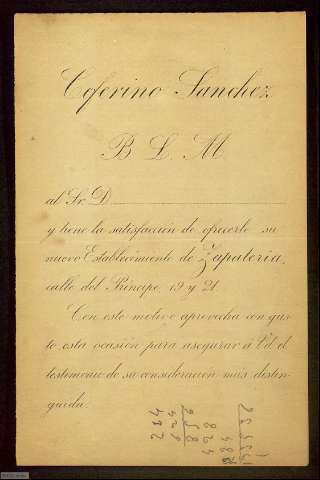 Ceferino Sanchez
B. L. M.
al Sr. D.
y tiene la satisfacción de ofrecerle su
nuevo Establecimiento de Zapatería,
calle del Príncipe 19 y 21.
Con este motivo aprovecha con gus-
to esta ocasión para asegurar á Vd el
testimonio de su consideración más distin-
guida.